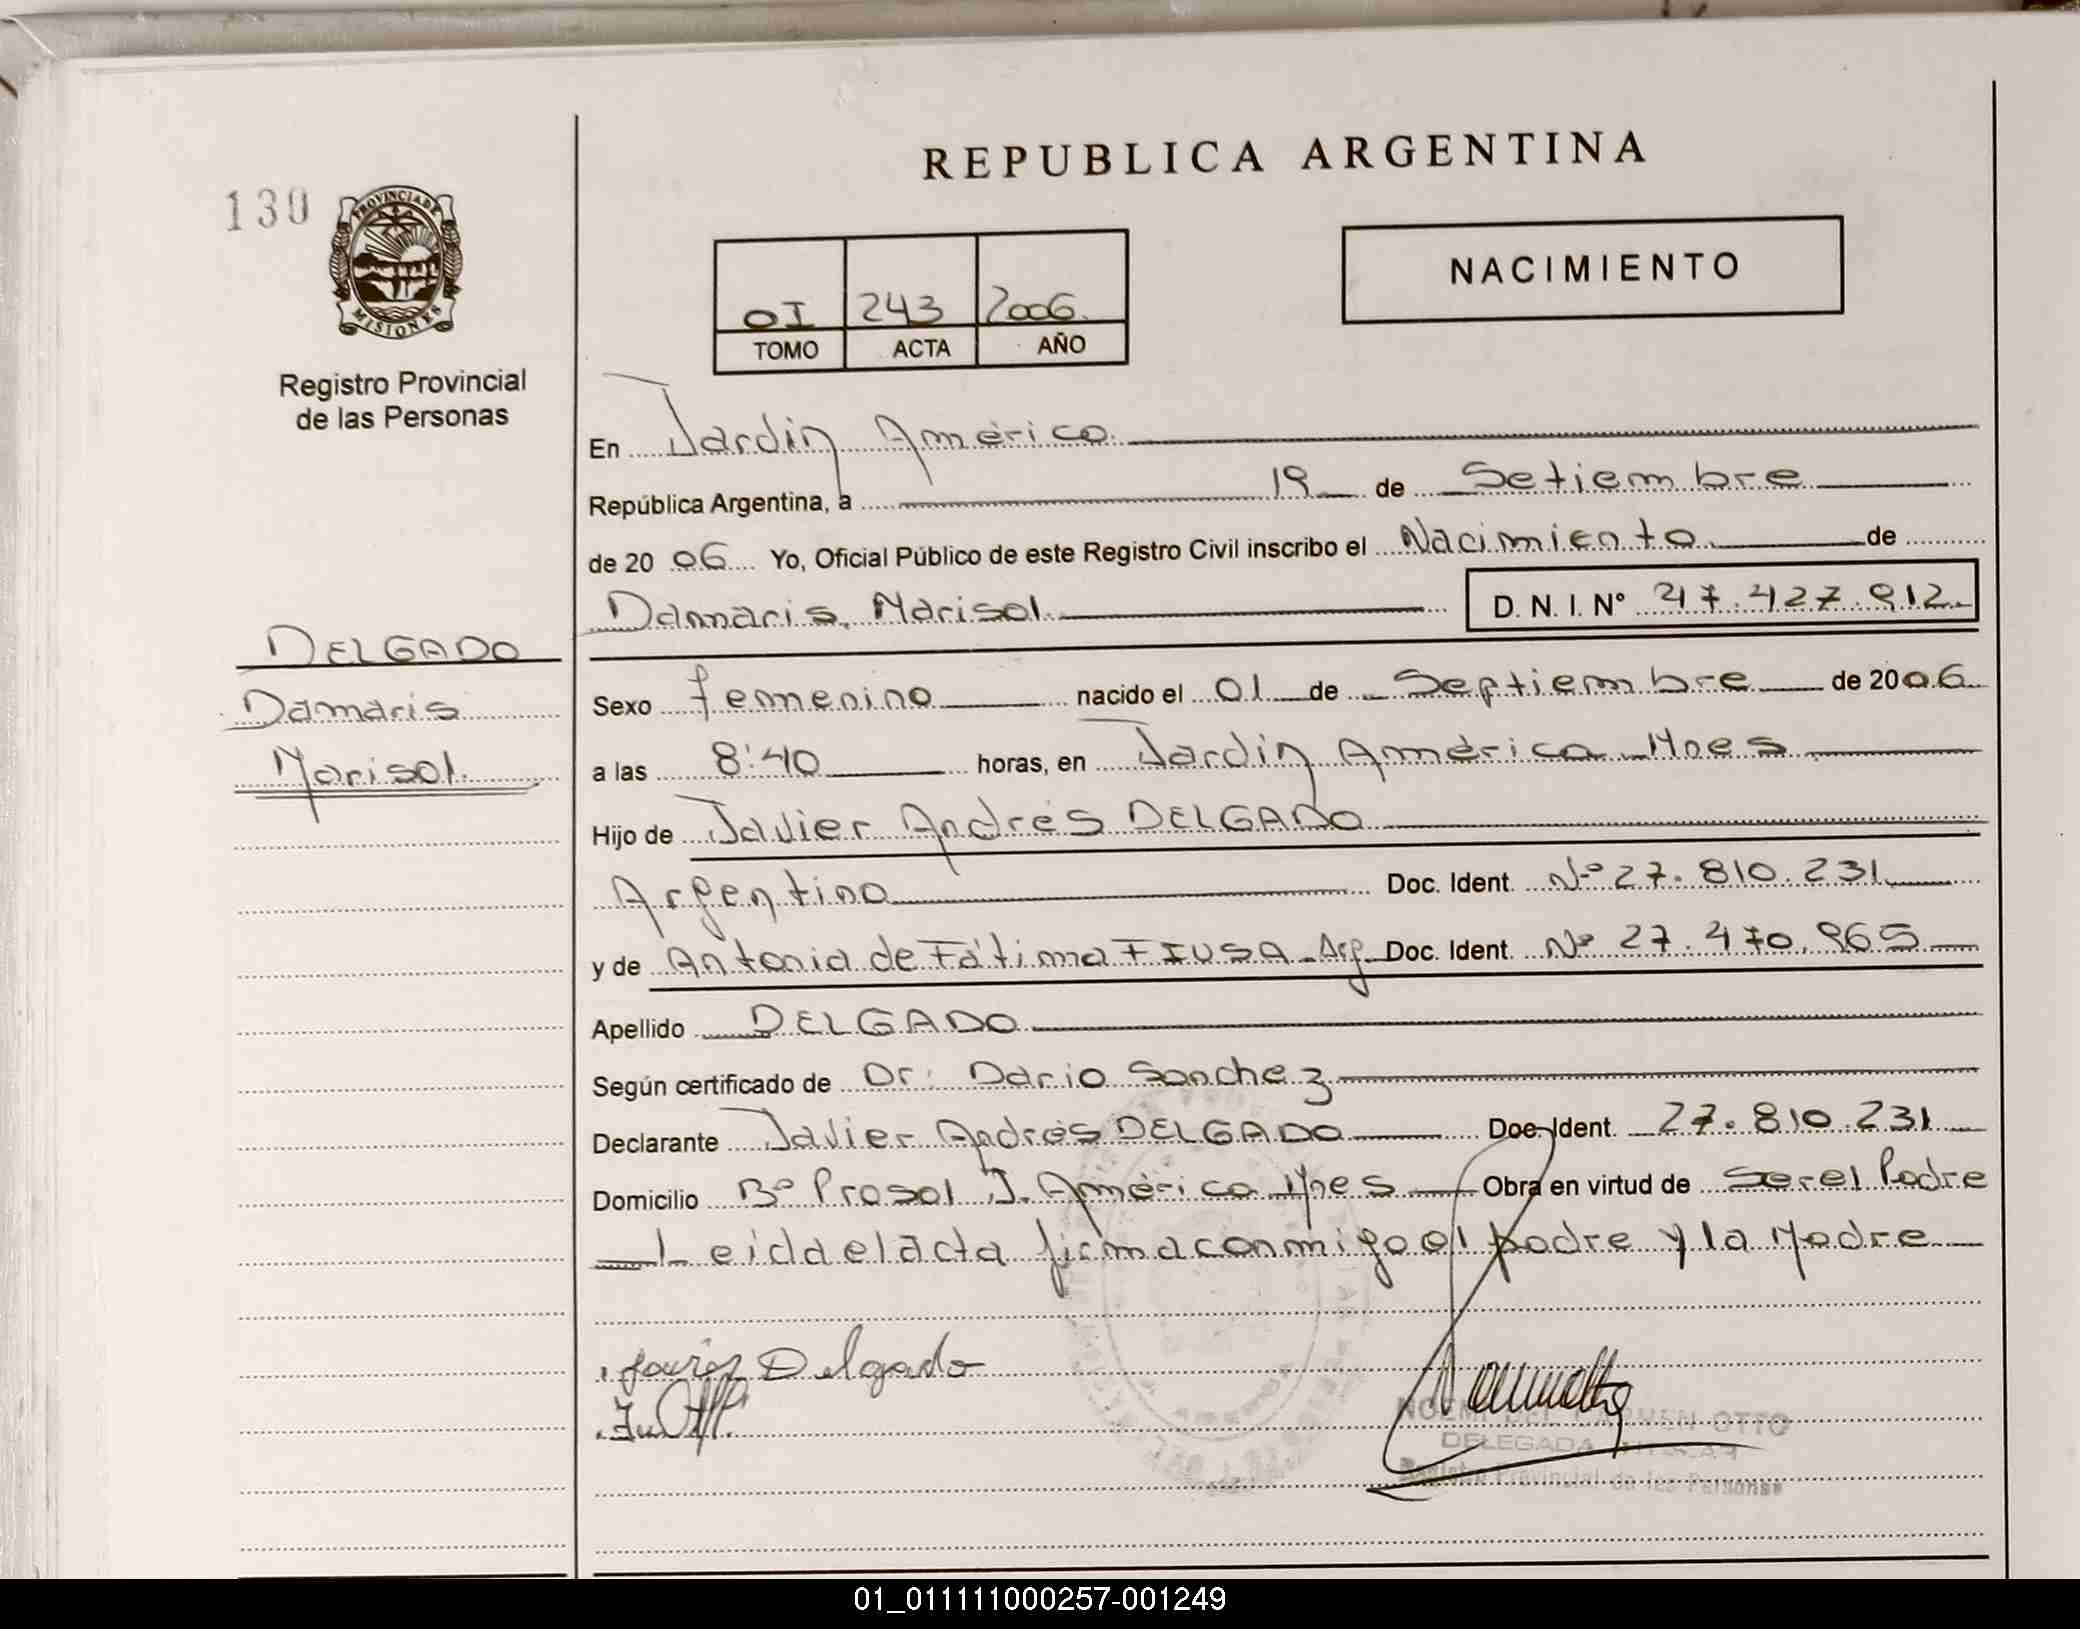 REPUBLICA ARGENTINA
130
PROVINCIA DE
MISIONES
Registro Provincial
de las Personas
NACIMIENTO
OI 243 2006
TOMO ACTA AÑO
En Jardín América
República Argentina, a 19 de Setiembre
de 2006 Yo, Oficial Público de este Registro Civil inscribo el Nacimiento de
Damaris Marisol D. N. I. N° 47.427.912
DELGADO
Damaris
Marisol
Sexo femenino nacido el 01 de Septiembre de 2006
a las 8:40 horas, en Jardín América Mnes
Hijo de Javier Andrés DELGADO
Argentino Doc. Ident. Nº 27.810.231
y de Antonia de Fátima FIUSA - Arg. Doc. Ident. Nº 27.470.965
Apellido DELGADO
Según certificado de Dr. Dario Sanchez
Declarante Javier Andrés DELGADO Doc. Ident. 27.810.231
Domicilio Bº Prosol J. América Mnes Obra en virtud de Ser el Padre
Leida el acta firma conmigo el padre y la Madre
Delgado
NOEMI DEL CARMEN OTTO
DELEGADA TITULAR
Registro Provincial de las Personas
01_011111000257-001249